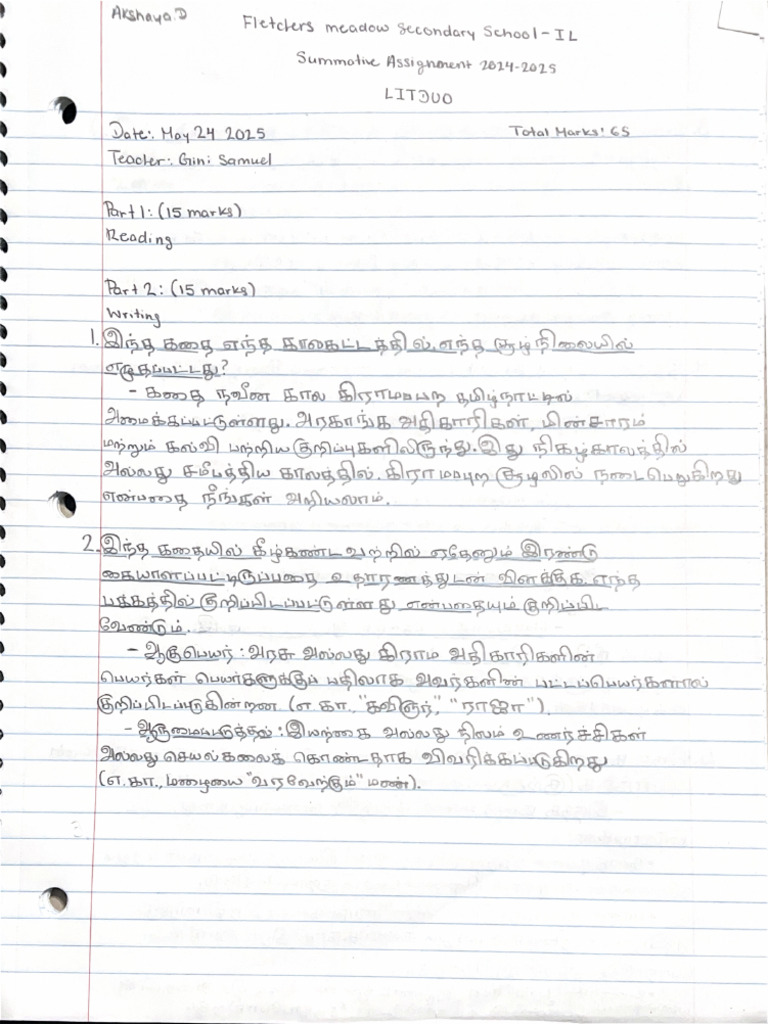 Akshaya.D
Fletchers meadow Secondary School-IL
Summative Assignment 2024-2025
LITDUO
Date: May 24 2025 Total Marks: 65
Teacher: Gini Samuel
Part 1: (15 marks)
Reading
Part 2: (15 marks)
Writing
1. இந்த கதை எந்த காலகட்டத்தில், எந்த சூழ்நிலையில்
எழுதப்பட்டது?
- கதை நவீன கால கிராமப்புற தமிழ்நாட்டில்
அமைக்கப்பட்டுள்ளது. அரசாங்க அதிகாரிகள், மின்சாரம்
மற்றும் கல்வி பற்றிய குறிப்புகளிலிருந்து. இது நிகழ்காலத்தில்
அல்லது சமீபத்திய காலத்தில். கிராமப்புற சூழலில் நடைபெறுகிறது
என்பதை நீங்கள் அறியலாம்.
2. இந்த கதையில் கீழ்கண்டவற்றில் ஏதேனும் இரண்டு
கையாளப்பட்டிருப்பதை உதாரணத்துடன் விளக்குக. எந்த
பக்கத்தில் குறிப்பிடப்பட்டுள்ளது என்பதையும் குறிப்பிட
வேண்டும்.
- ஆகுபெயர்: அரசு அல்லது கிராம அதிகாரிகளின்
பெயர்கள் பெயர்களுக்குப் பதிலாக அவர்களின் பட்டப்பெயர்களால்
குறிப்பிடப்படுகின்றன (எ.கா., "கவிஞர்," "ராஜா").
- ஆளுமைபடுத்தல்: இயற்கை அல்லது நிலம் உணர்ச்சிகள்
அல்லது செயல்களைக் கொண்டதாக விவரிக்கப்படுகிறது
(எ.கா., மழையை "வரவேற்கும்" மண்).